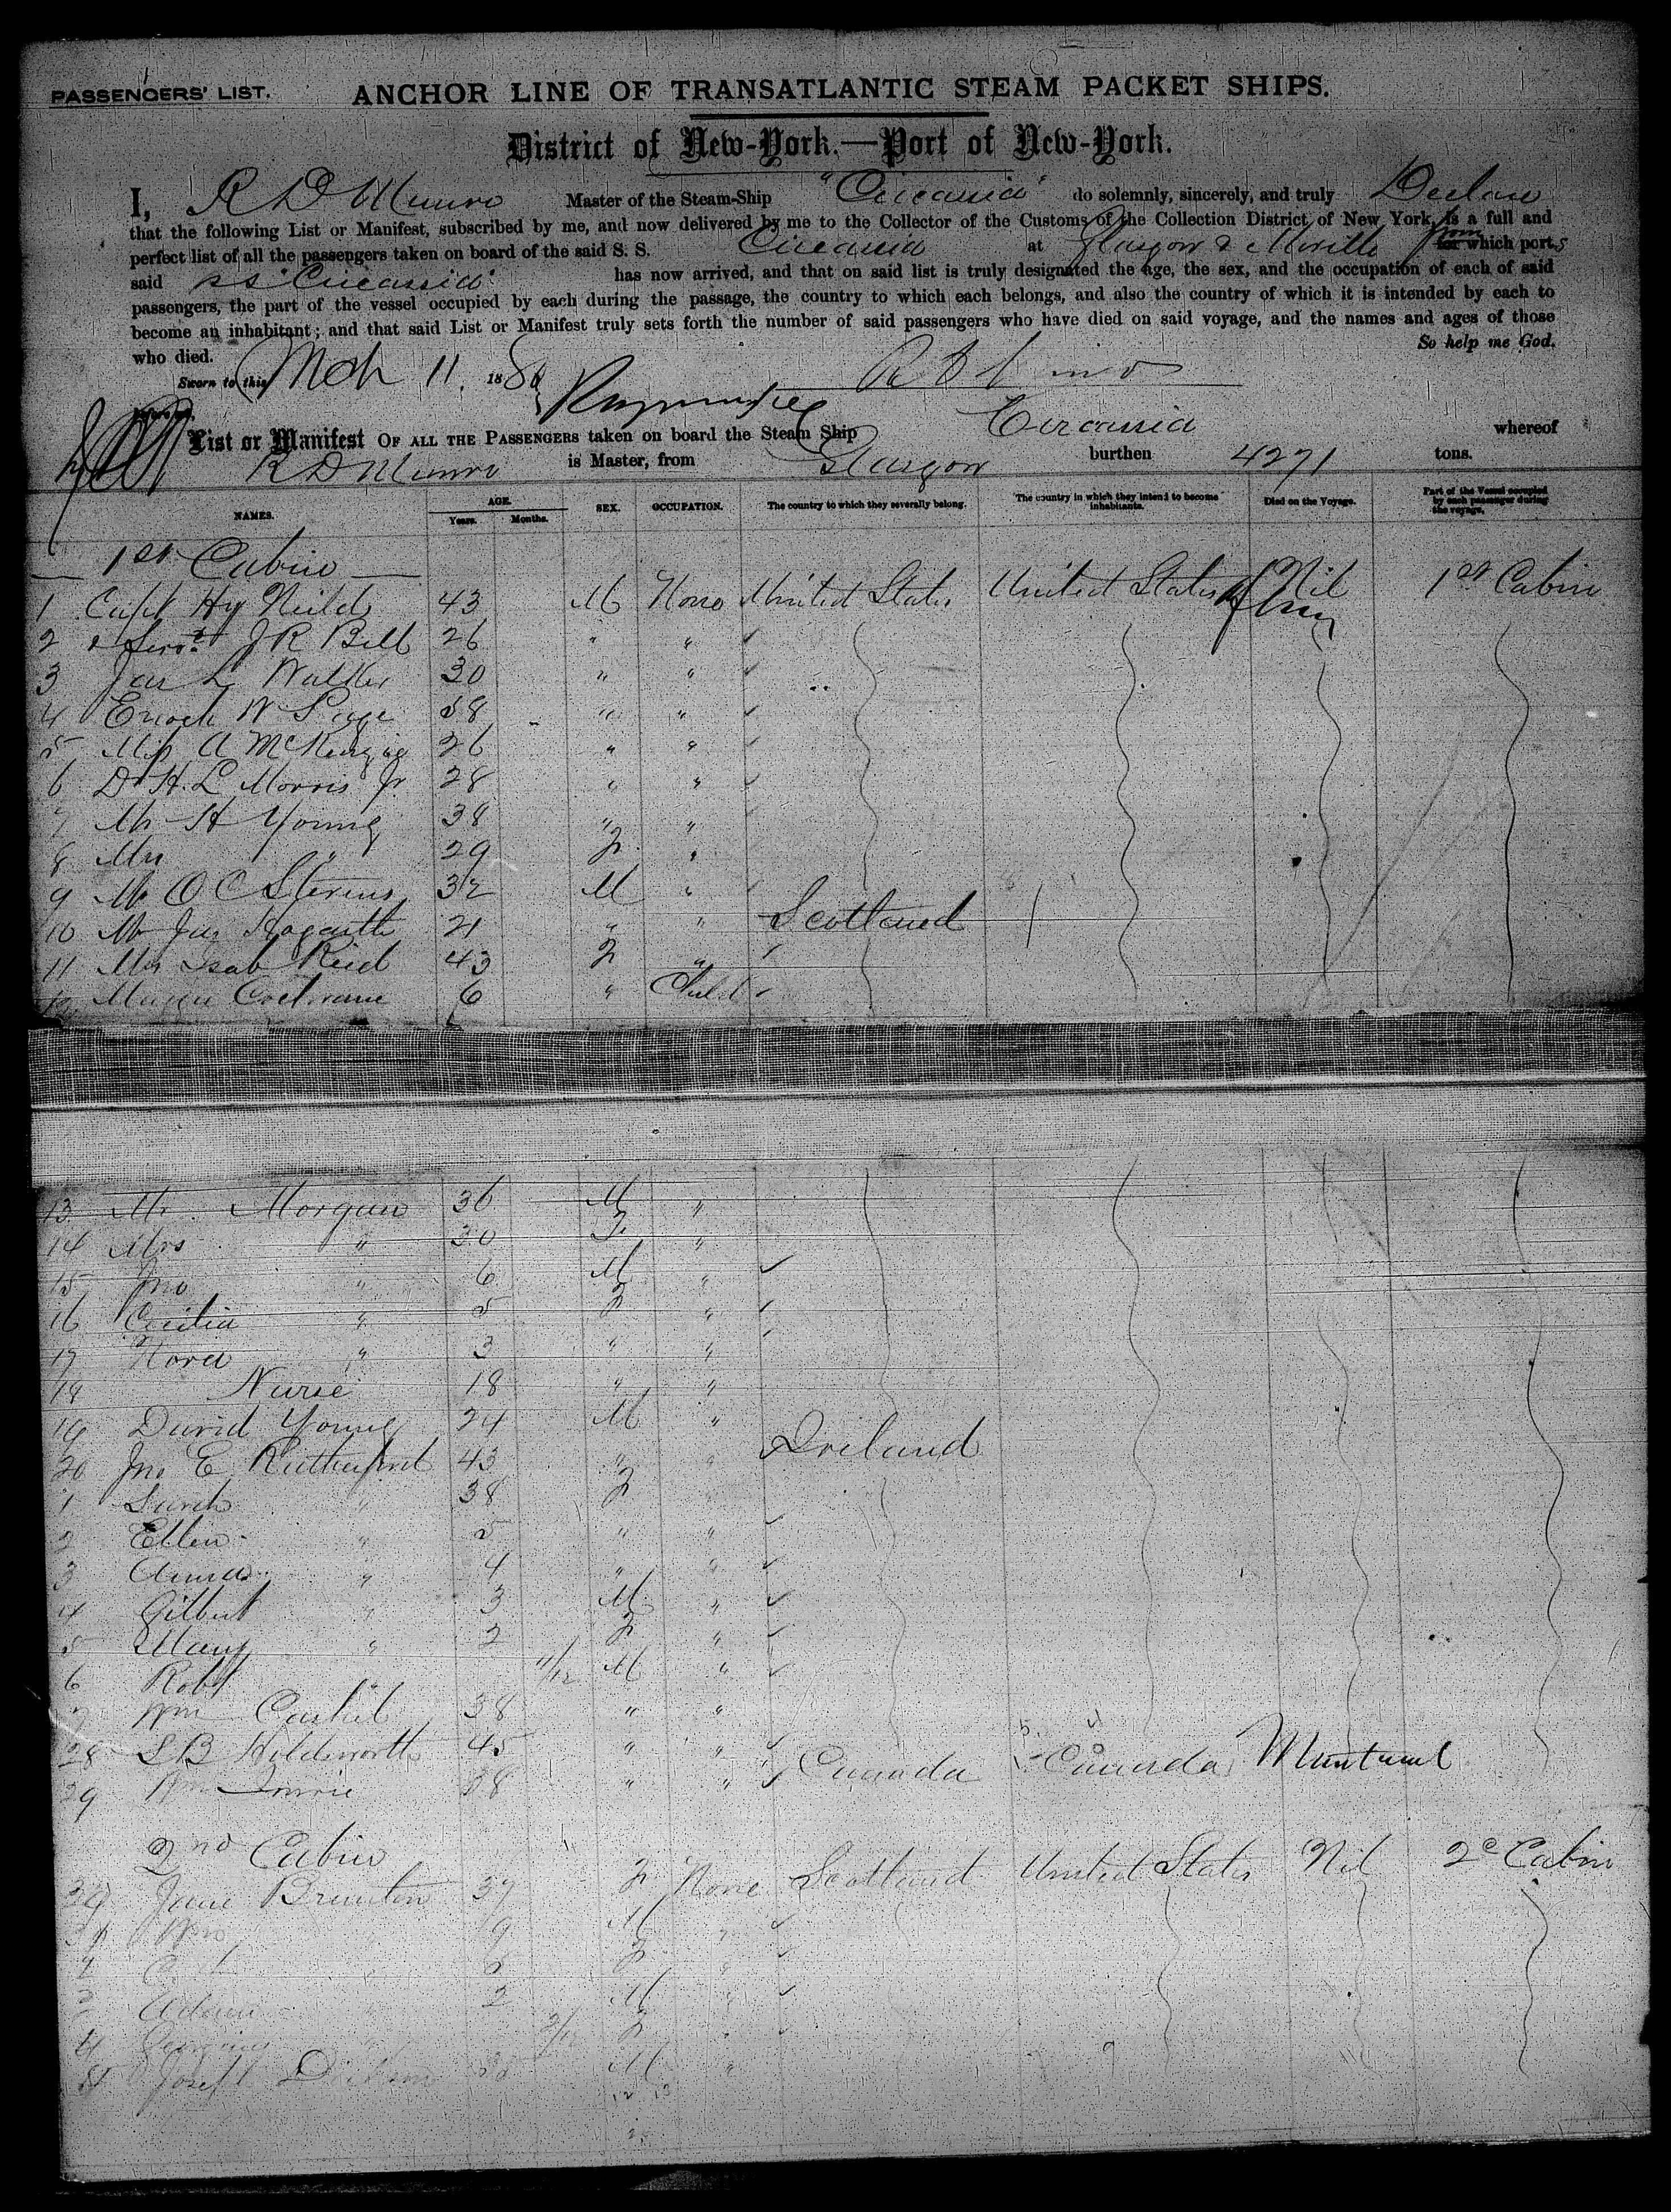 PASSENGERS' LIST. ANCHOR LINE OF TRANSATLANTIC STEAM PACKET SHIPS.
District of New-York.—Port of New-York.
I, R D Munro Master of the Steam-Ship "Circassia" do solemnly, sincerely, and truly Declare
that the following List or Manifest, subscribed by me, and now delivered by me to the Collector of the Customs of the Collection District of New York, is a full and
perfect list of all the passengers taken on board of the said S. S. Circassia at Glasgow & Moville from which ports
said ss "Circassia" has now arrived, and that on said list is truly designated the age, the sex, and the occupation of each of said
passengers, the part of the vessel occupied by each during the passage, the country to which each belongs, and also the country of which it is intended by each to
become an inhabitant; and that said List or Manifest truly sets forth the number of said passengers who have died on said voyage, and the names and ages of those
who died. So help me God.
Sworn to this Mch 11, 1880 R D Munro
before me,
List or Manifest OF ALL THE PASSENGERS taken on board the Steam Ship Circassia whereof
R D Munro is Master, from Glasgow burthen 4271 tons.
NAMES. AGE. Years. Months. SEX. OCCUPATION. The country to which they severally belong. The country in which they intend to become inhabitants. Died on the Voyage. Part of the Vessel occupied by each passenger during the voyage.
1st Cabin
1 Capt Hy Neilds 43 M None United States United States Nil 1st Cabin
2 & Servt J R Bell 26 " "
3 Jas L Walker 30 " "
4 Enoch W Page 58 " "
5 Miss A McKenzie 26 " "
6 Dr H. L Morris Jr 28 " "
7 Mr H Young 38 " "
8 Mrs " 29 F "
9 Mr O C Stevens 32 M "
10 Mr Jas Hogarth 21 " " Scotland
11 Mrs Isab Reid 43 F "
12 Maggie Cochrane 6 " Child
13 Mr. Morgan 36 M "
14 Mrs " 30 F "
15 Jno " 6 M "
16 Cecilia " 5 F "
17 Flora " 3 " "
18 Nurse 18 " "
19 David Young 24 M "
20 Jno E Rutherford 43 " " Ireland
1 Sarah " 38 F "
2 Ellen " 5 " "
3 Anna " 4 " "
4 Gilbert " 3 M "
5 Mary " 2 F "
6 Robt " 11/12 M "
7 Wm 38 " "
28 S B Holdsworth 45 " "
29 Wm 58 " " Canada Canada Montreal
2nd Cabin
30 Jane Brunton 37 F None Scotland United States Nil 2d Cabin
31 Wm 9 M "
2 6 F "
3 Adam 2 M "
4 Georgina 3/12 F "
5 Joseph M "